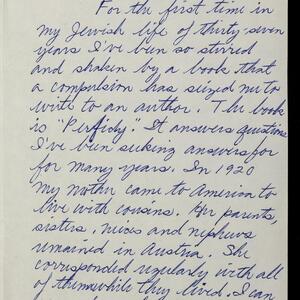 For the first time in
my Jewish life of thirty-seven
years I've been so stirred
and shaken by a book that
a compulsion has seized me to
write to an author. The book
is "Perfidy". It answers questions
I've been seeking answers for
for many years. In 1920
my mother came to America to
live with cousins. Her parents,
sisters, nieces and nephews
remained in Austria. She
corresponded regularly with all
of them while they lived. I can